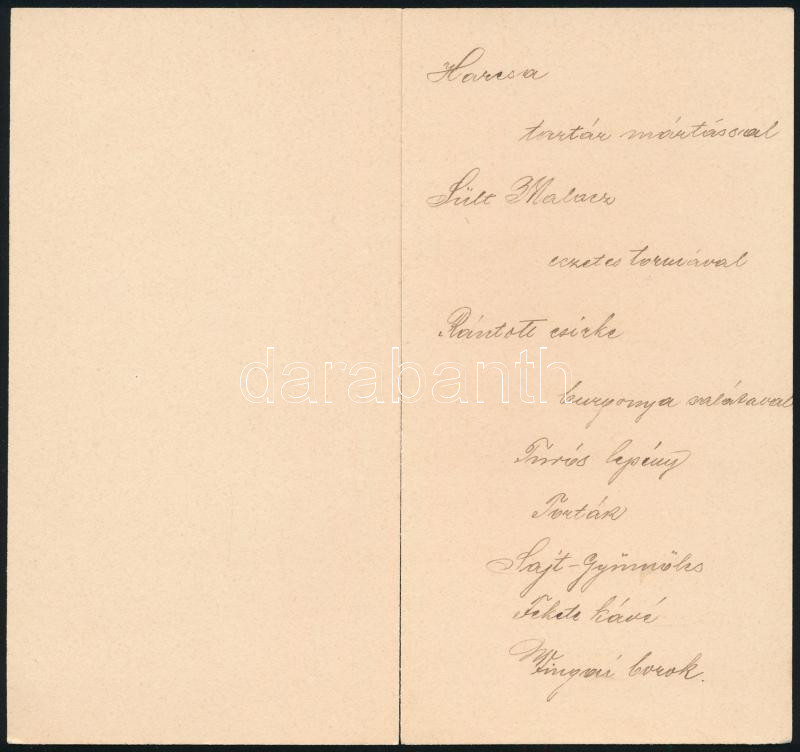 Harcsa
tartár mártással
Sült Malacz
eczetes tormával
Rántott csirke
darabanth
burgonya salátával
Túrós lepény
Torták
Sajt-Gyümölcs
Fekete kávé
borok.